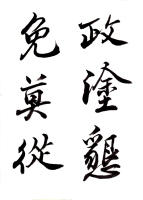 政塗墾
免莫從